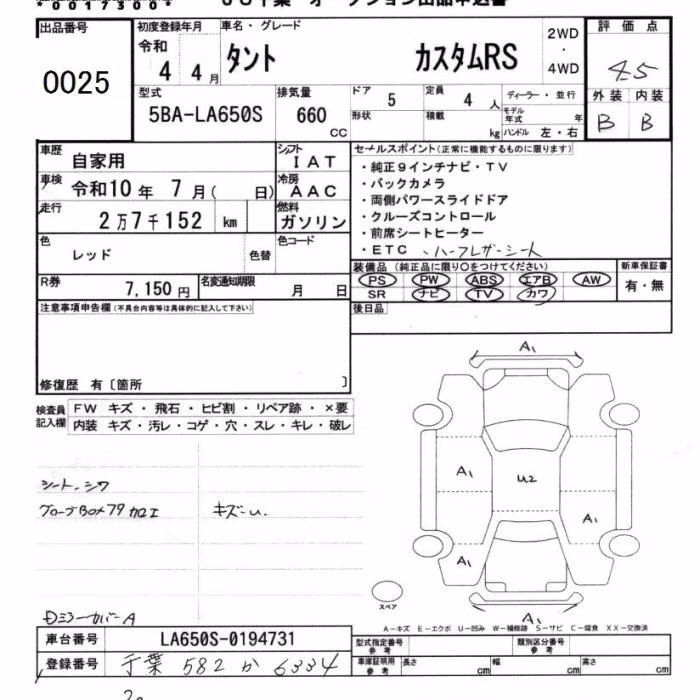 *00173004*
JU千葉 オークション出品申込書
出品番号
0025
初度登録年月
令和
4 4月
車名・グレード
タント カスタムRS
2WD
・
4WD
評価点
4.5
外装 内装
B B
型式
5BA-LA650S
排気量
660
CC
ドア
5
定員
4 人
ディーラー・並行
形状
積載
kg
モデル年式 年
ハンドル 左・右
車歴
自家用
シフト
IAT
車検
令和10年 7月( 日)
冷房
AAC
走行
2万7千152 km
燃料
ガソリン
色
レッド
色替
色コード
R券
7,150円
名変通知期限
月 日
セールスポイント(正常に機能するものに限ります)
・純正9インチナビ・TV
・バックカメラ
・両側パワースライドドア
・クルーズコントロール
・前席シートヒーター
・ETC ・ハーフレザーシート
装備品 (純正品に限り○をつけてください)
PS PW ABS エアB AW
SR ナビ TV カワ
新車保証書
有・無
後日品
注意事項申告欄(不具合内容等は具体的に記入して下さい)
修復歴 有〔箇所 〕
検査員
記入欄
FW キズ・飛石・ヒビ割・リペア跡・×要
内装 キズ・汚レ・コゲ・穴・スレ・キレ・破レ
シート、シワ
グローブBOXフタ加工
キズ-u.
Dミラーカバー A
A1
A1
U2
A1
A1
A1
スペア
A-キズ E-エクボ U-凹み W-補修跡 S-サビ C-腐食 XX-交換済
車台番号
LA650S-0194731
登録番号
千葉 582 か 6334
型式指定番号
参考
類別区分番号
参考
車庫証明用
参考
長さ cm
幅 cm
高さ cm